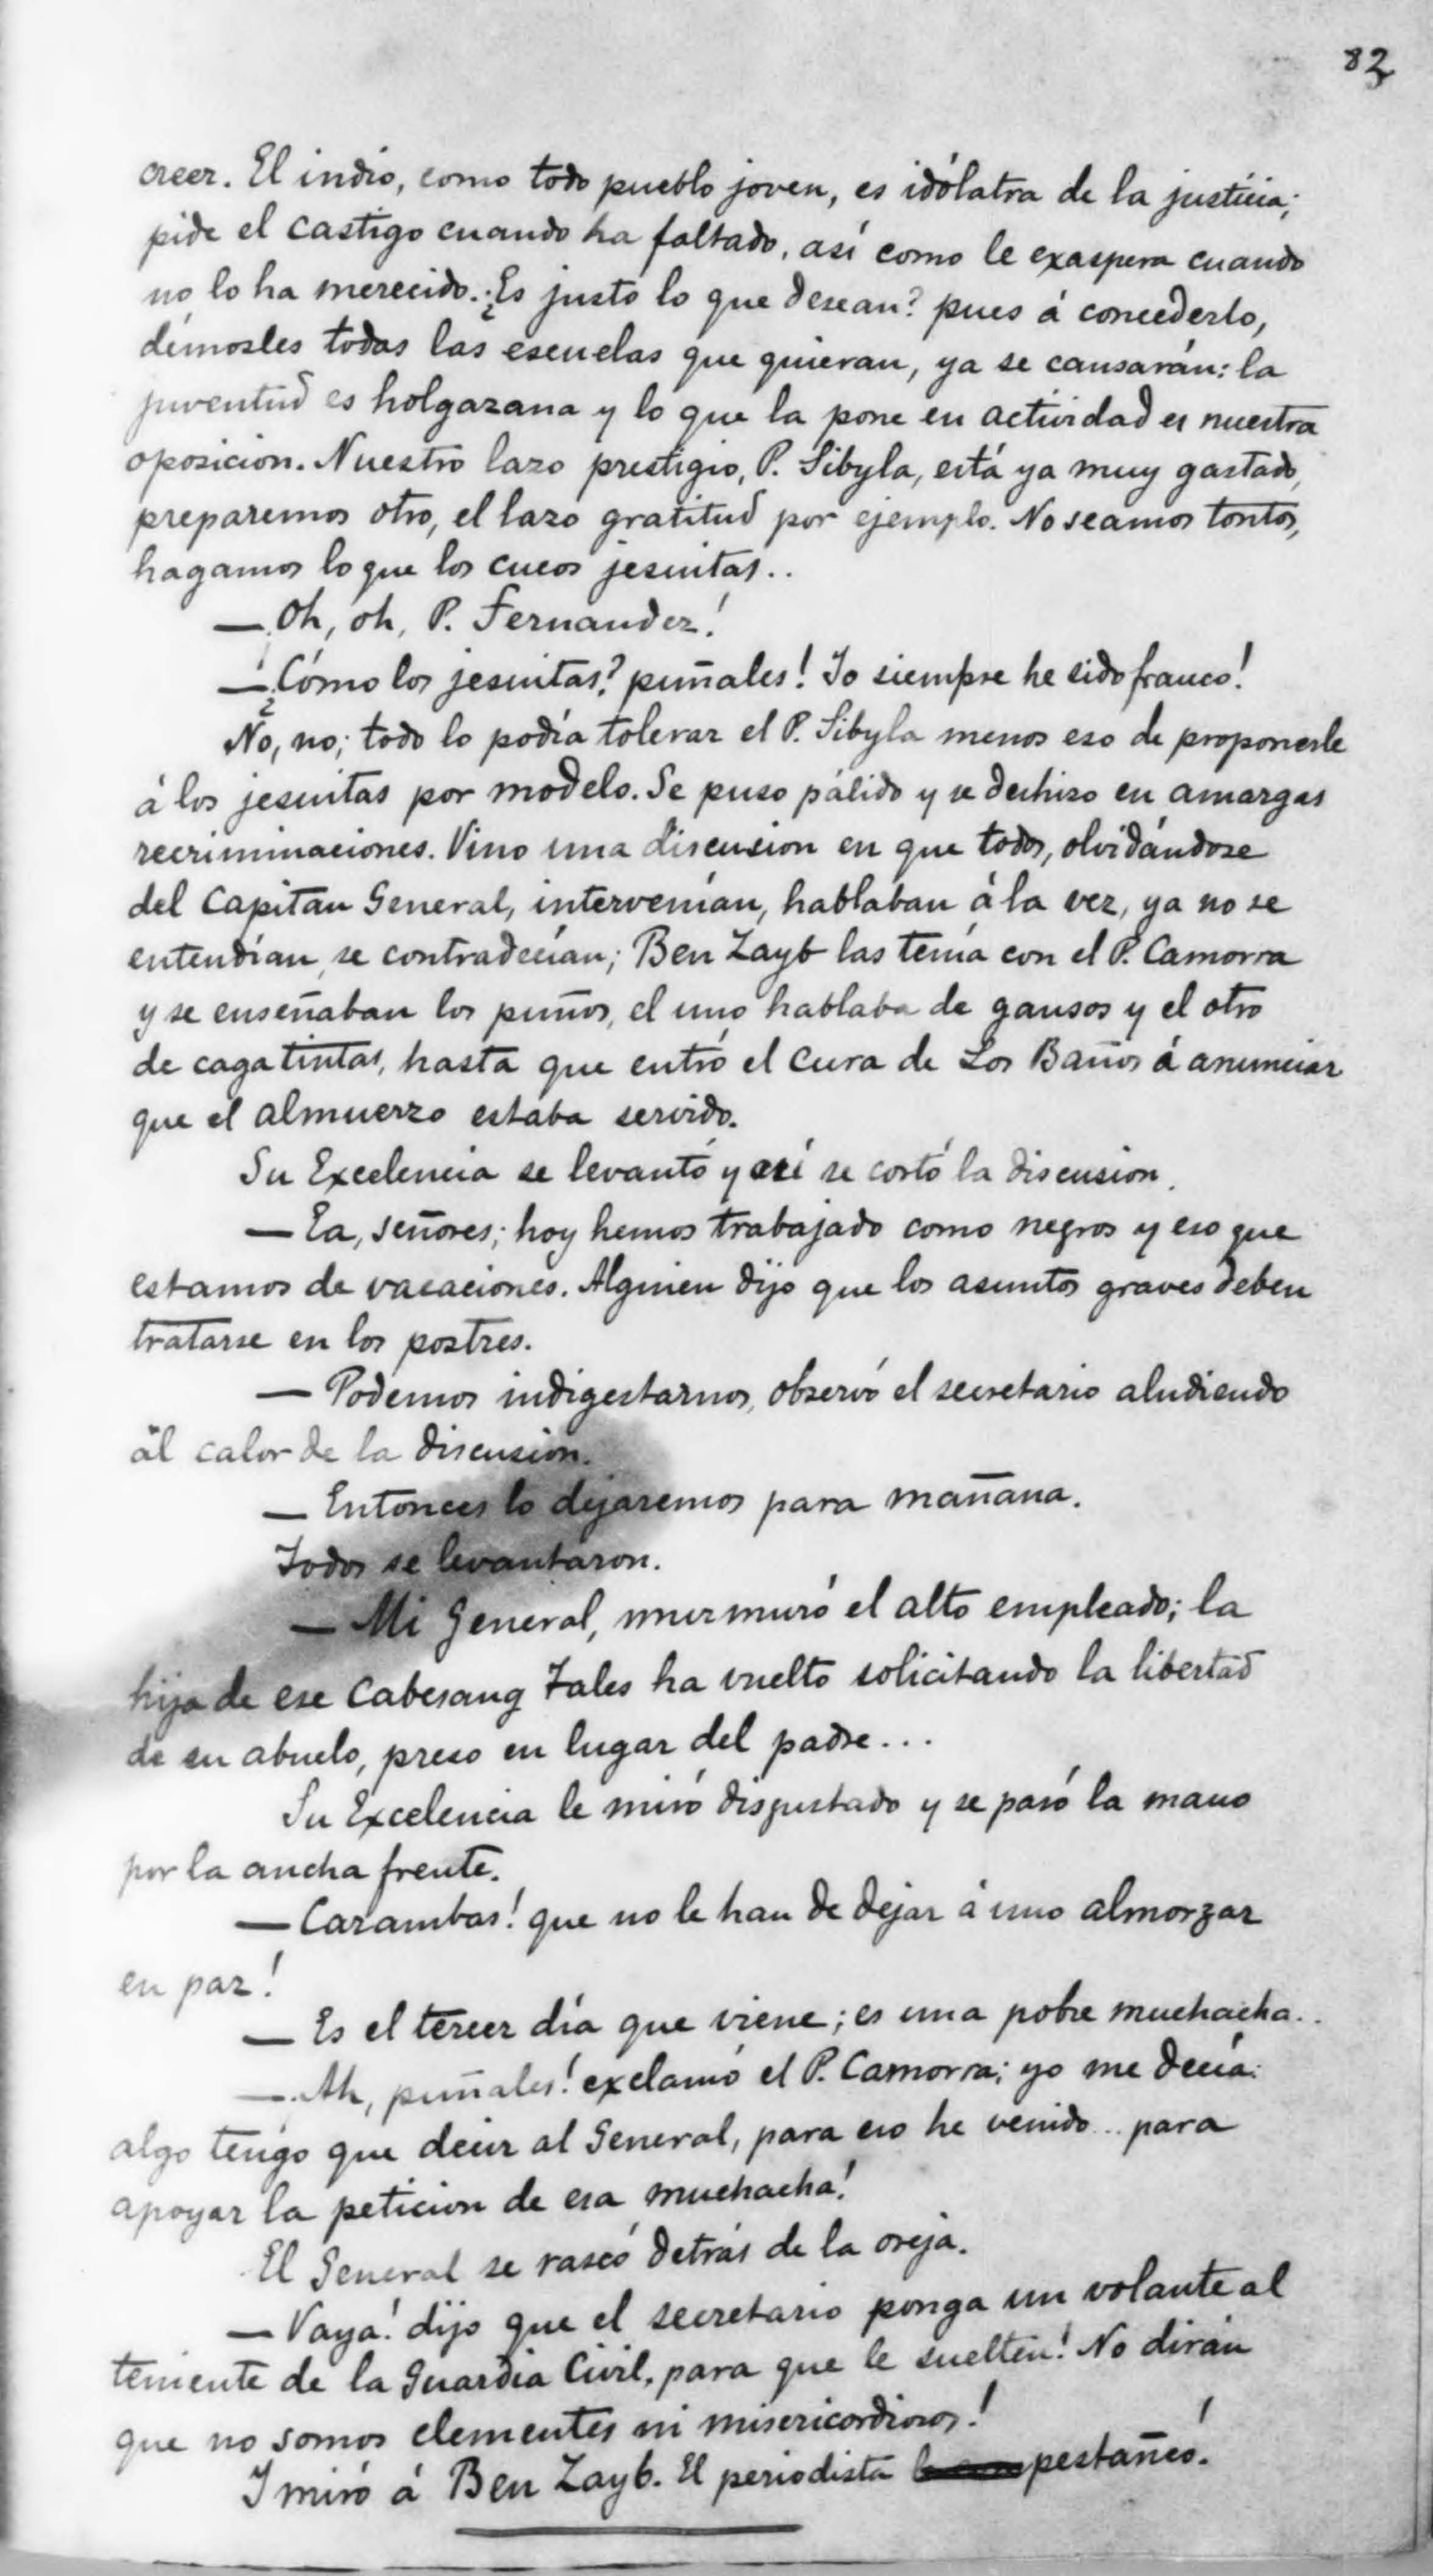 82
creer. El indio, como todo pueblo joven, es idólatra de la justicia;
pide el castigo cuando ha faltado, así como le exaspera cuando
no lo ha merecido. ¿Es justo lo que desean? pues á concederlo,
démosles todas las escuelas que quieran, ya se cansarán: la
juventud es holgazana y lo que la pone en actividad es nuestra
oposicion. Nuestro lazo prestigio, P. Sibyla, está ya muy gastado,
preparemos otro, el lazo gratitud por ejemplo. No seamos tontos,
hagamos lo que los cucos jesuitas..
— ¡Oh, oh, P. Fernandez!
— ¿Cómo los jesuitas? puñales! Yo siempre he sido franco!
No, no; todo lo podía tolerar el P. Sibyla menos eso de proponerle
á los jesuitas por modelo. Se puso pálido y se deshizo en amargas
recriminaciones. Vino una discusion en que todos, olvidándose
del Capitan General, intervenían, hablaban á la vez, ya no se
entendían, se contradecían; Ben Zayb las tenía con el P. Camorra
y se enseñaban los puños, el uno hablaba de gansos y el otro
de cagatintas, hasta que entró el cura de Los Baños á anunciar
que el almuerzo estaba servido.
Su Excelencia se levantó y así se cortó la discusion.
— Ea, señores; hoy hemos trabajado como negros y eso que
estamos de vacaciones. Alguien dijo que los asuntos graves deben
tratarse en los postres.
— Podemos indigestarnos, observó el secretario aludiendo
al calor de la discusion.
— Entonces lo dejaremos para mañana.
Todos se levantaron.
— Mi General, murmuró el alto empleado; la
hija de ese Cabesang Tales ha vuelto solicitando la libertad
de su abuelo, preso en lugar del padre...
Su Excelencia le miró disgustado y se pasó la mano
por la ancha frente.
— Carambas! que no le han de dejar á uno almorzar
en paz!
— Es el tercer día que viene; es una pobre muchacha..
— ¡Ah, puñales! exclamó el P. Camorra; yo me decía:
algo tengo que decir al General, para eso he venido... para
apoyar la peticion de esa muchacha!
El General se rascó detrás de la oreja.
— Vaya! dijo que el secretario ponga un volante al
teniente de la Guardia Civil, para que le suelten! No dirán
que no somos clementes ni misericordiosos!
Y miró á Ben Zayb. El periodista pestañeó.